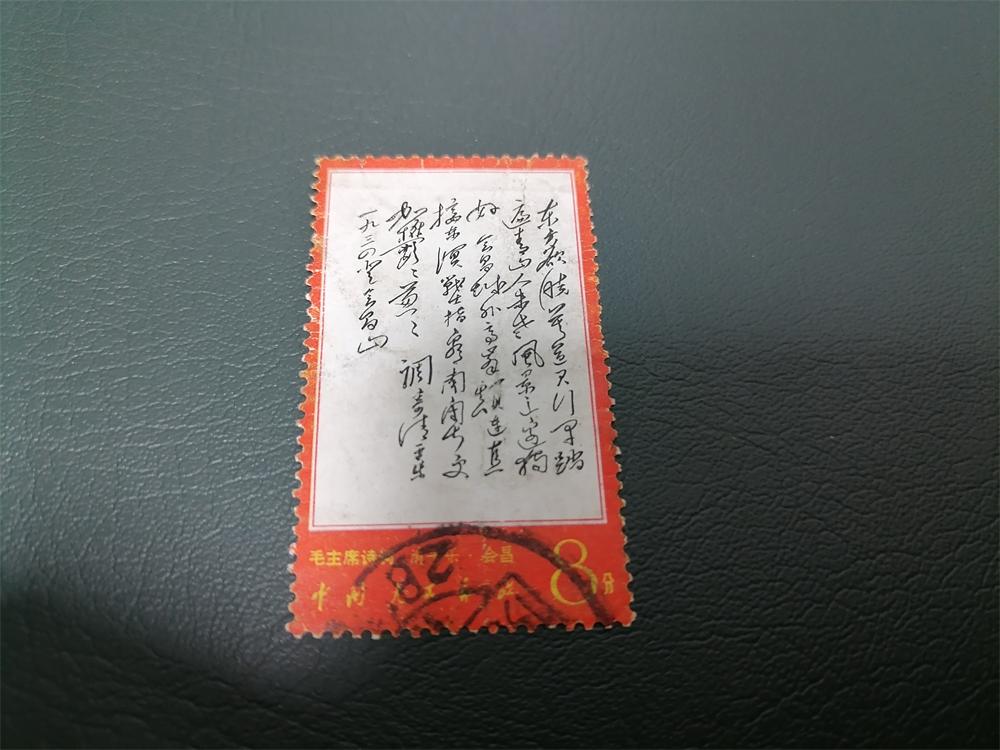 东方欲晓莫道君行早踏
遍青山人未老风景这边独
好 会昌城外高峯颠连直
接东溟戰士指看南粤更
加鬱々葱々 調寄清平乐
一九三四登会昌山
毛主席诗词 清平乐·会昌
中国人民邮政
8分
28